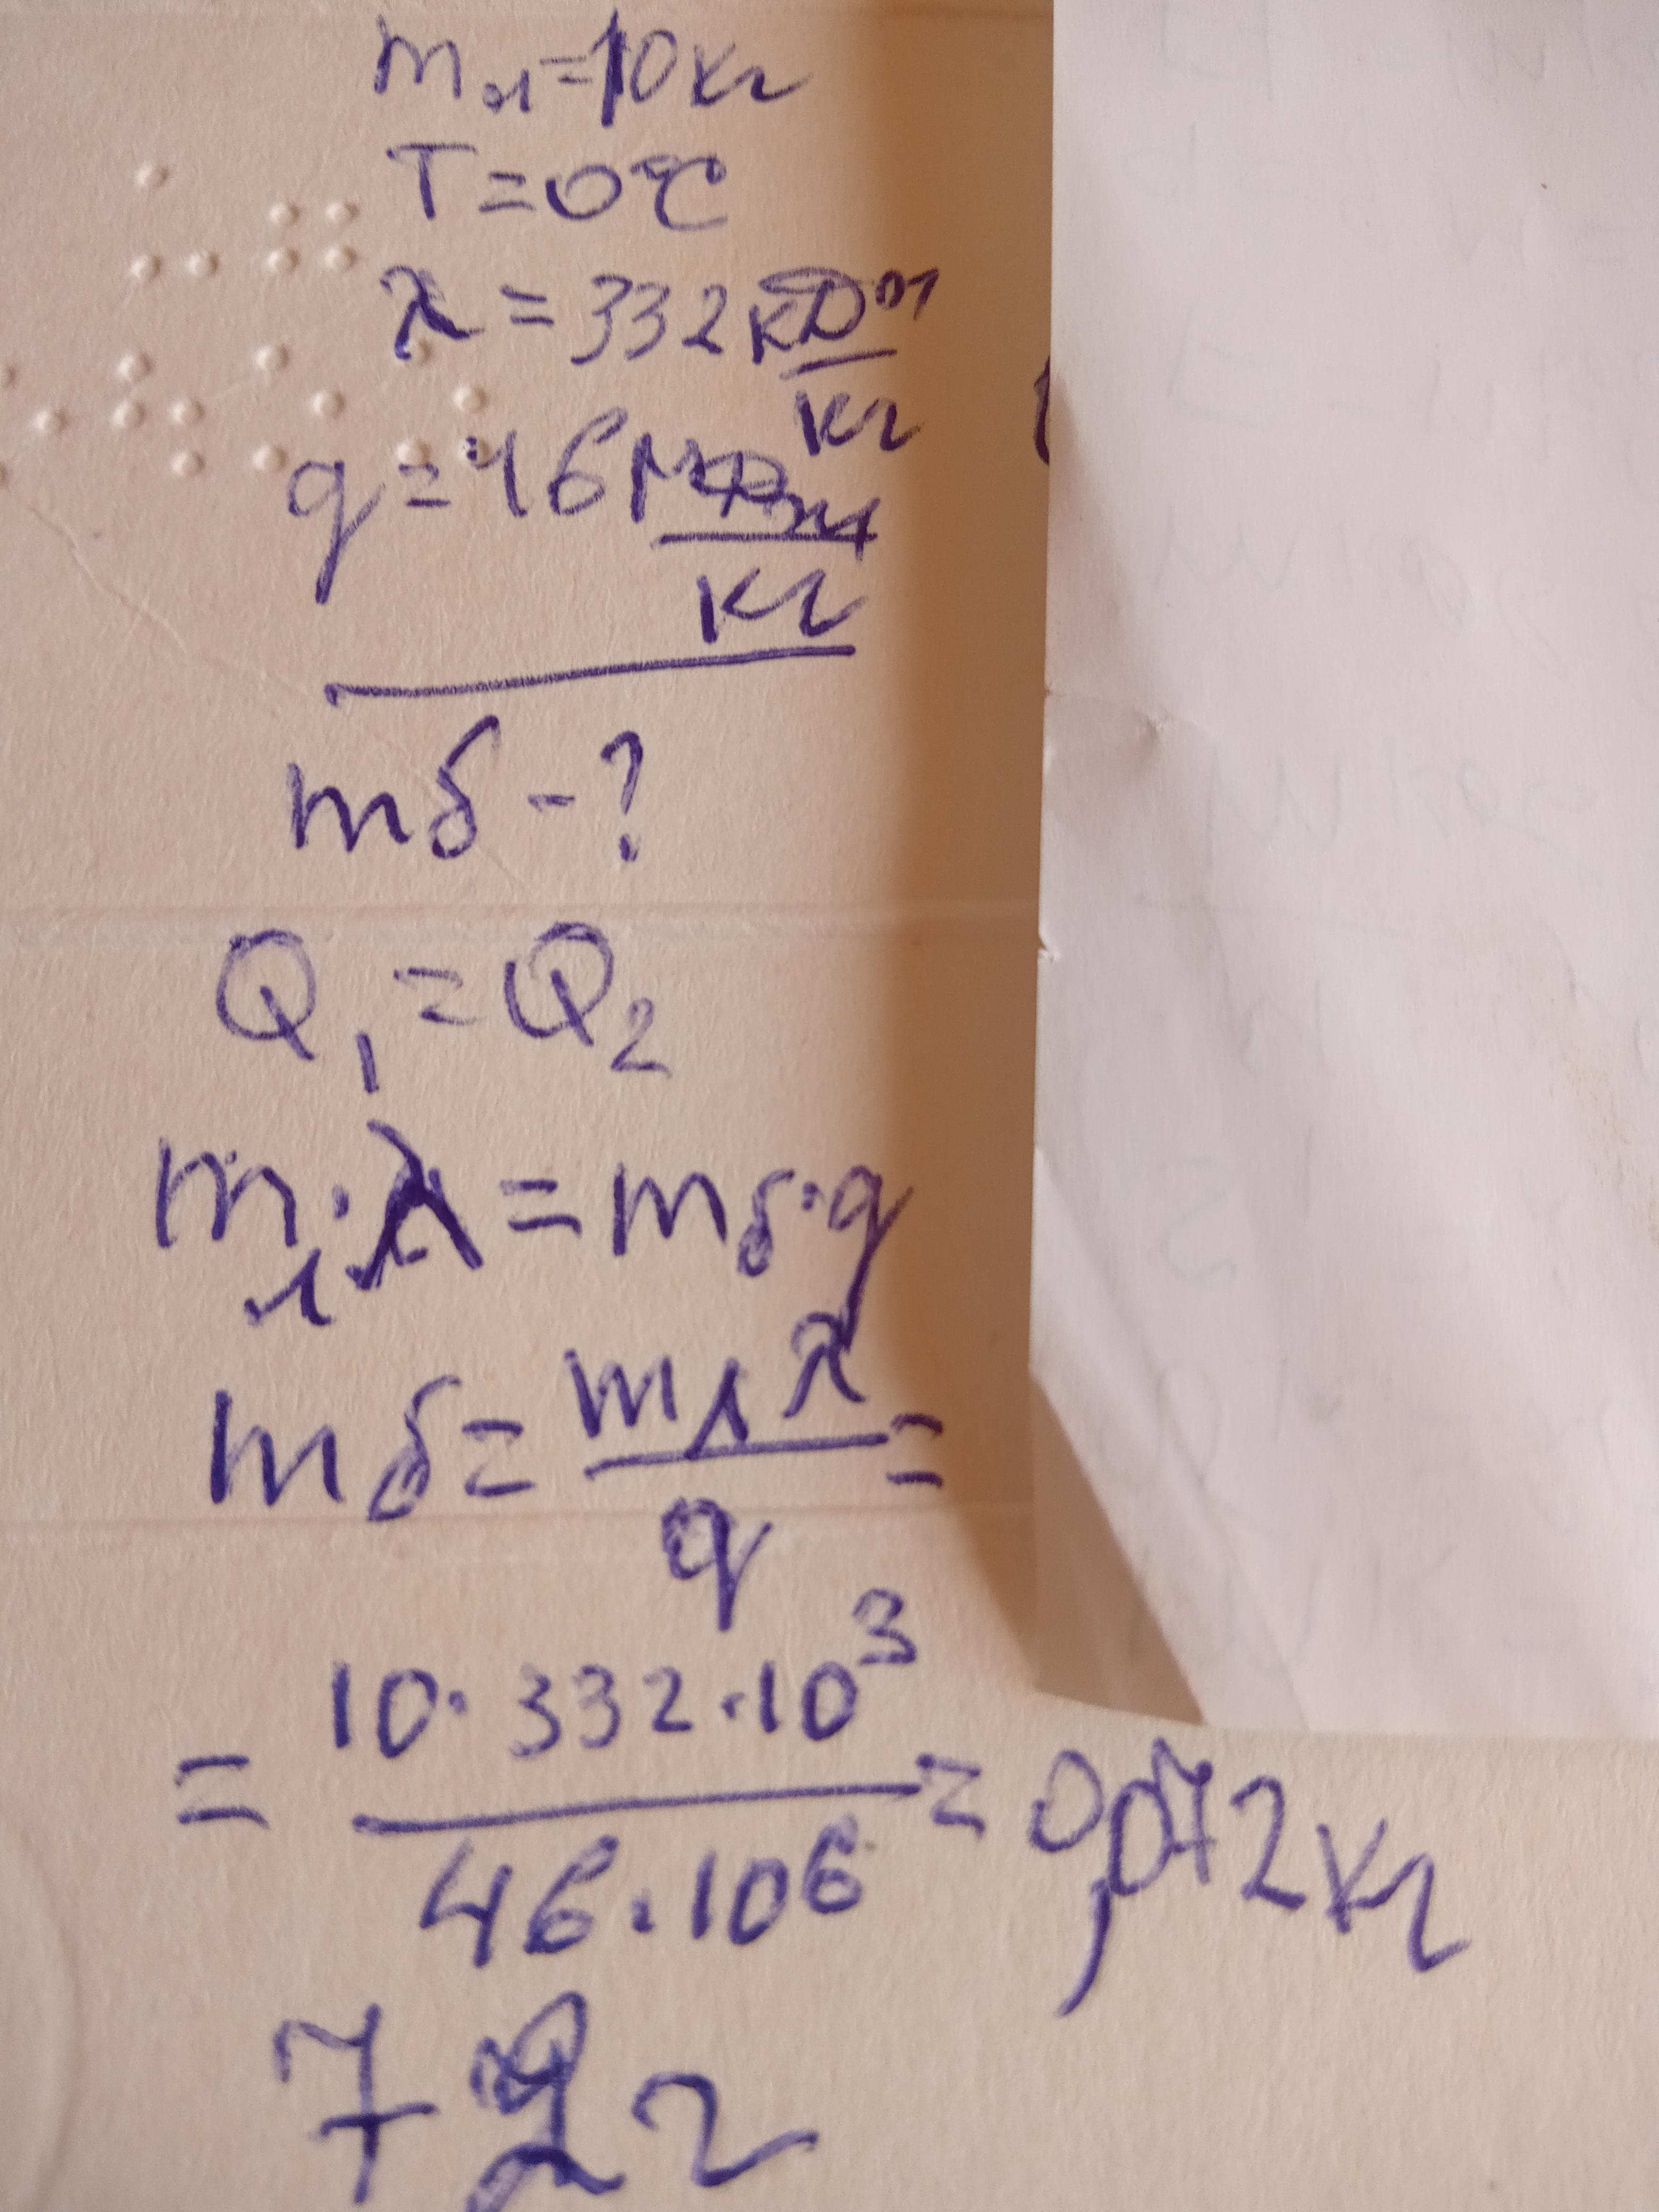 mл=10кг
T=0℃
λ=332кДж
кг
q=46МДж
кг
mб-?
Q₁=Q₂
mл·λ=mб·q
mб=mлλ=
q
=10·332·10³=0,072кг
46·10⁶
72г